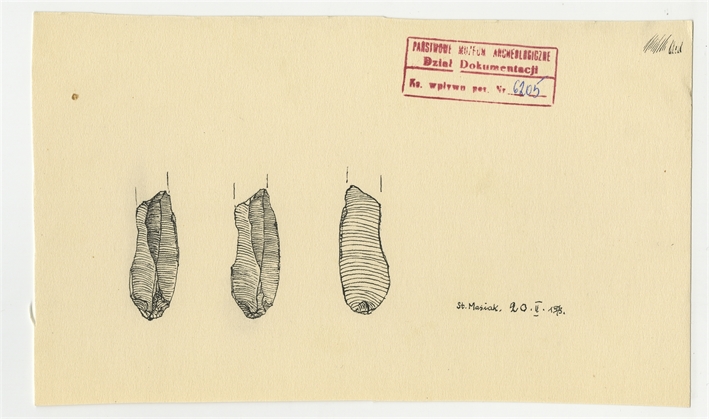 PAŃSTWOWE MUZEUM ARCHEOLOGICZNE
Dział Dokumentacji
Ks. wpływu poz. Nr. 6205
St. Masiak, 20.V.